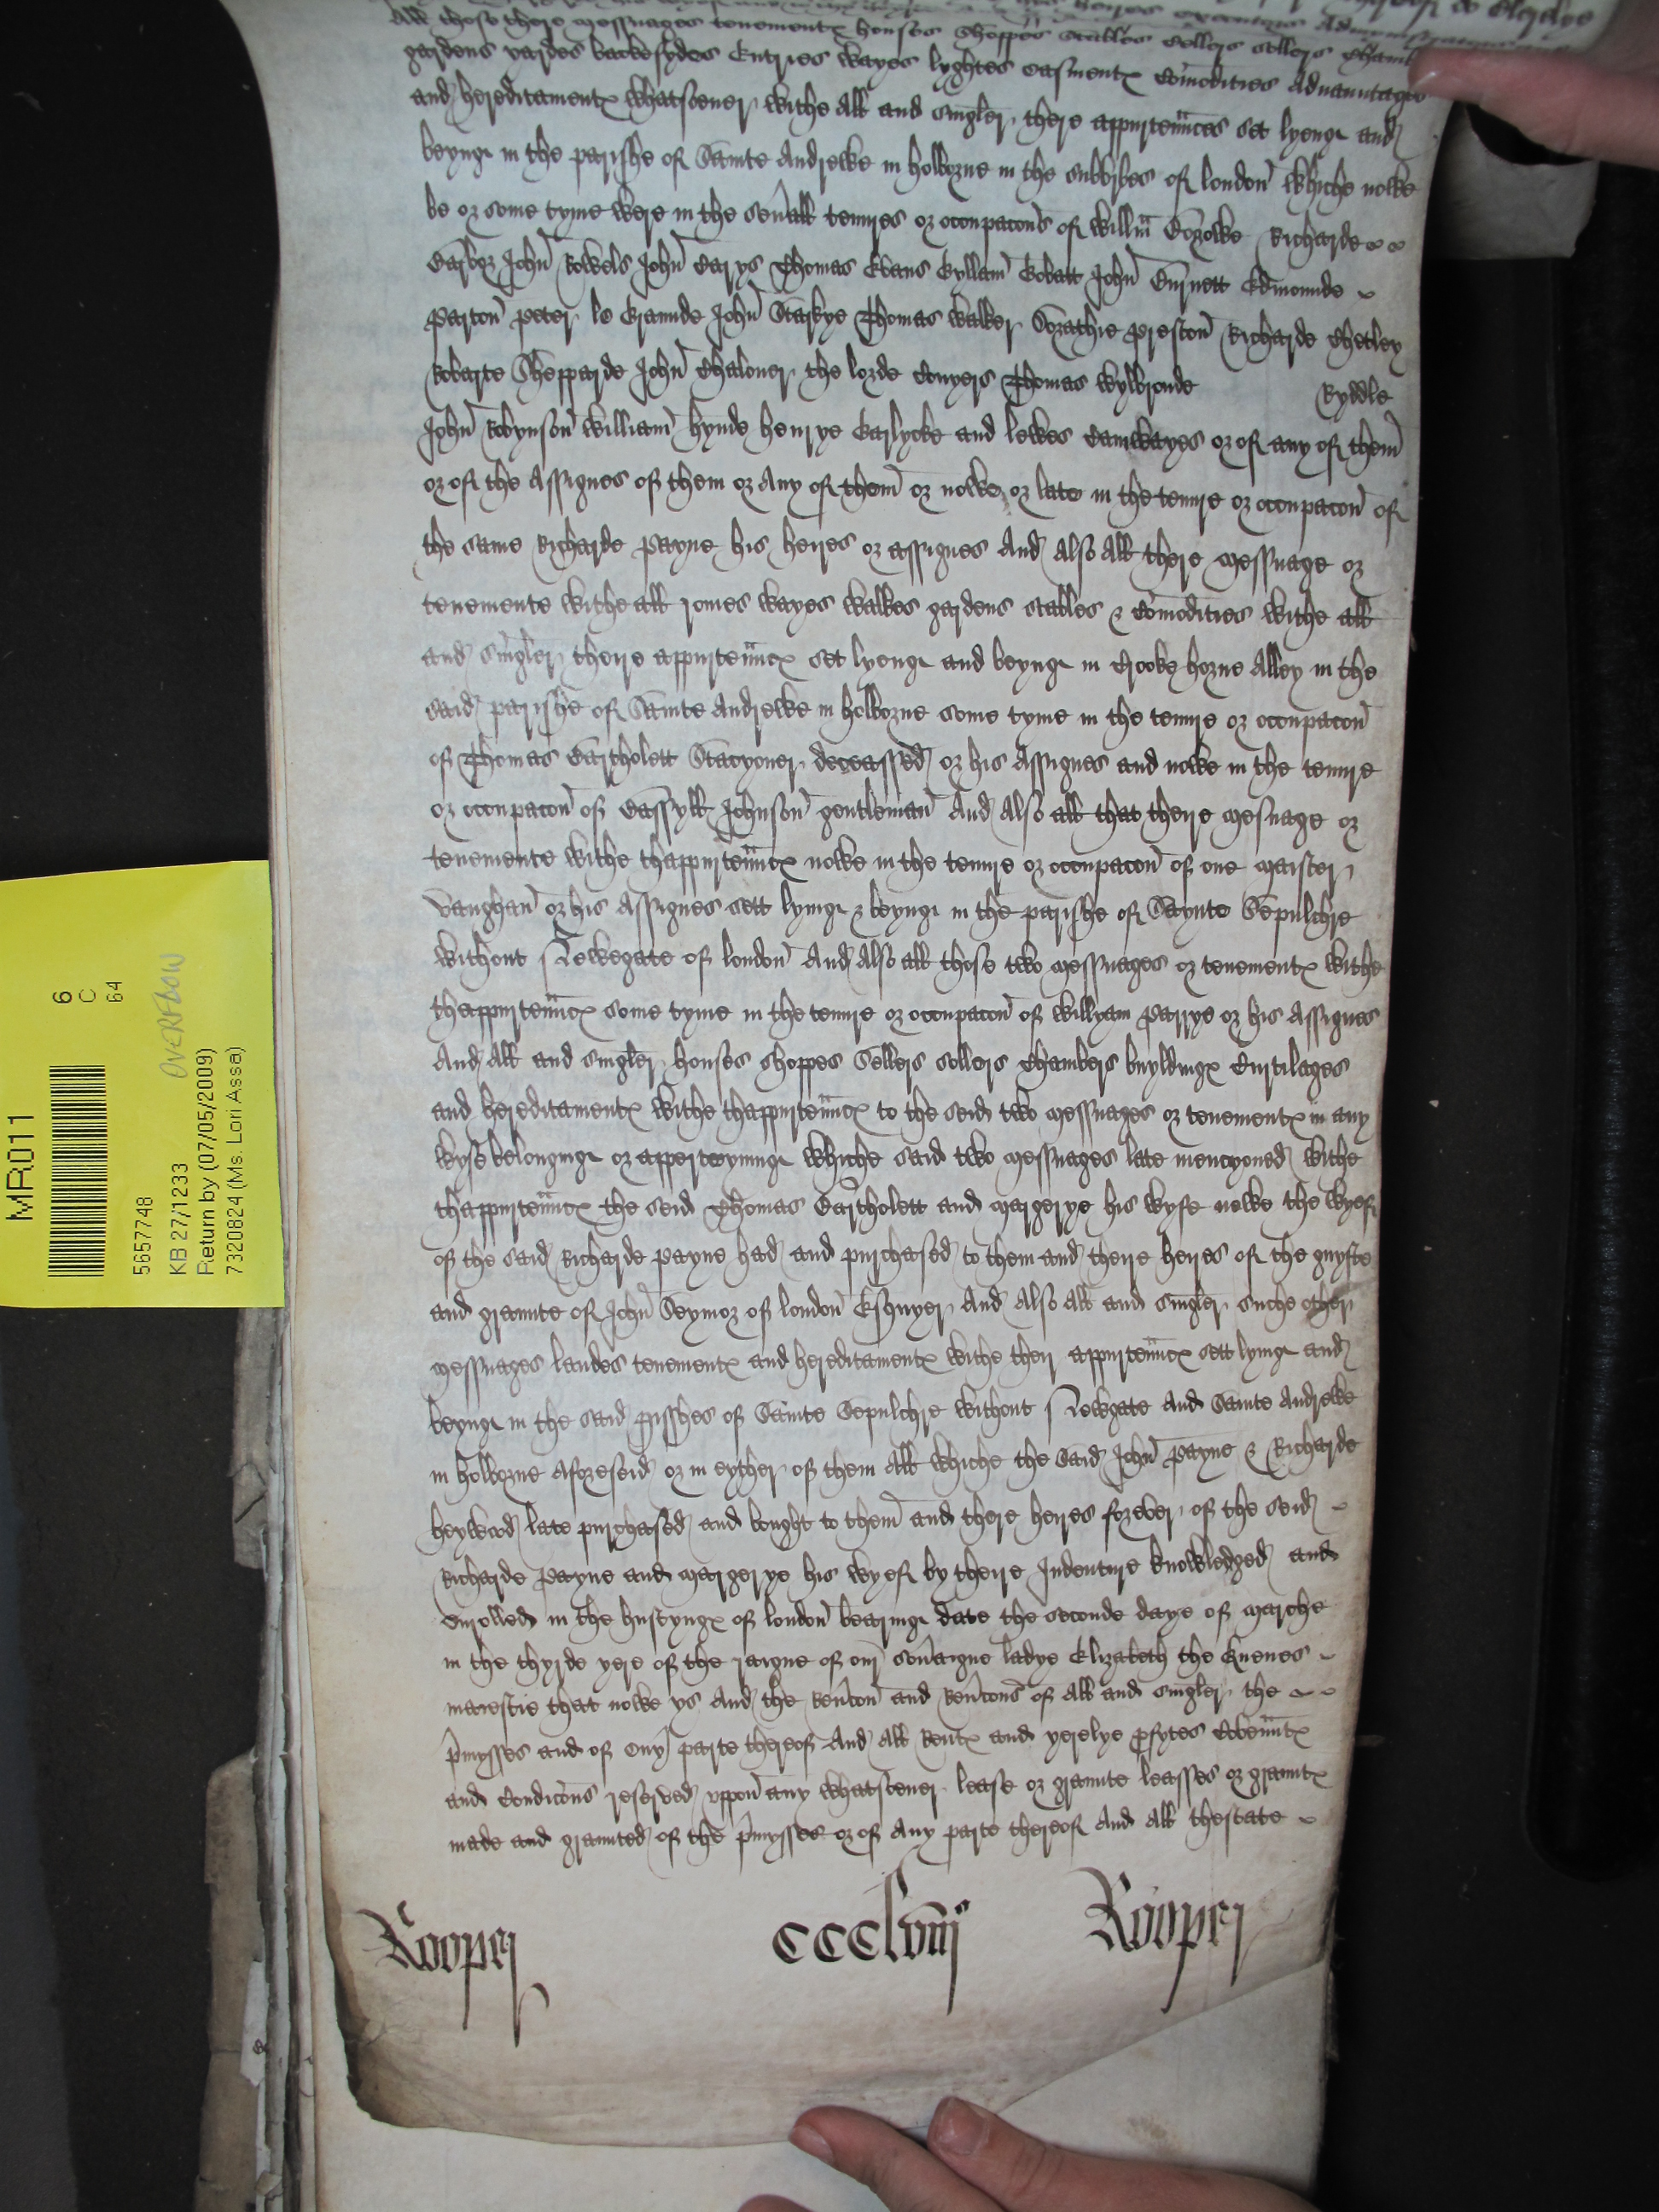 All those there messuages tenementx houses Shoppes stalles Cellers sollers Chamb
gardens yardes backesydes Entries wayes lyghtes easmentx Comodities Aduauntages
and hereditamentx whatsoeuer withe all and singler there appurtennces set lyenge and
beynge in the parishe of Sainte Andrewe in holborne in the subbrbes of london whiche nowe
be or some tyme were in the seuall tenures or occupacons of Willm Richarde
John Rowels John Thomas Evans John Edmounde
Parton Peter le Graunde John Starkye Thomas Walker Dorathie Preston Richarde Chetley
Robarte Shepparde John Chaloner the lorde Conyers Thomas Ryddle
John Robynson William Hynde Henrye Garlycke and Lewes or of any of them
or of the Assignes of them or Any of them or nowe or late in the tenure or occupacon of
the same Richarde Payne his heires or assignes And also All there messuage or
tenemente withe all romes wayes walkes gardens stables & Comodities withe all
and singler there appurtenncx set lyenge and beynge in Crooke horne Alley in the
said parishe of Sainte Andrewe in holborne some tyme in the tenure or occupacon
of Thomas Bartholett Stacyoner deceassed or his Assignes and nowe in the tenure
or occupacon of Cassyll Johnson gentleman And Also all that there mesuage or
tenemente withe thappurtenncx nowe in the tenure or occupacon of one maister
Vaughan or his Assignes sett lyinge & beynge in the parishe of Saynte Sepulchre
without Newegate of london And Also all those two messuages or tenementx withe
thappurtenncx some tyme in the tenure or occupacon of Willyam Parrye or his Assignes
And All and singler houses shoppes Sellers sollers Chambers buyldingx Curtilages
and hereditamentx withe thappurtenncx to the seid two messuages or tenementx in any
wyse belonginge or apperteyninge whiche said two messuages late mencyoned withe
thappurtenncx the seid Thomas Bartholett and Margerye his wyfe nowe the wyef
of the said Richarde Payne had and purchased to them and there heires of the guyfte
and graunte of John Seymor of london Esquyer And Also All and singler suche other
messuages landes tenementx and hereditamentx withe their appurtenncx sett lyinge and
beynge in the said pisshes of Sainte Sepulchre without Newgate And Sainte Andrewe
in holborne aforeseid or in eyther of them All whiche the said John Payne & Richarde
heywood late purchased and bought to them and there heires forever of the seid
Richarde Payne and Margerye his wyef by there Indenture knowledged and
enrolled in the hustyngx of london bearinge date the seconde daye of Marche
in the thyrde yere of the raigne of our souaigne ladye Elizabeth the Quenes
maiestie that nowe ys And the reucon and reucons of All and singler the
pmysses and of euy parte thereof And All Rentx and yerelye pfytes Covenntx
and Condicons reserved uppon any whatsoeuer lease or graunte leasses or grauntx
made and graunted of the pmysses or of Any parte thereof And All thestate
Rooper ccclviij Rooper
MR011
6
C
64
5657748
KB 27/1233
OVERFLOW
Return by (07/05/2009)
7320824 (Ms. Lori Assa)